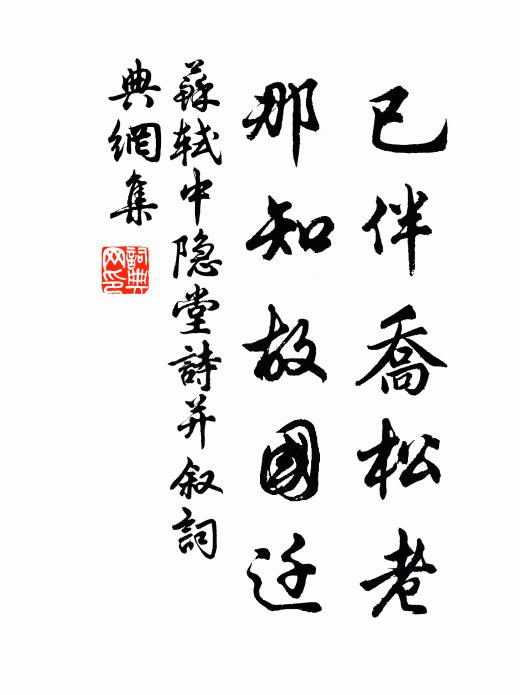 已伴喬松老
那知故國迁
蘇軾中隐堂詩并叙詞
典網集
詞典网印